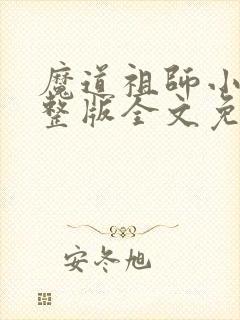 魔道祖师小
整版全文免
安冬旭